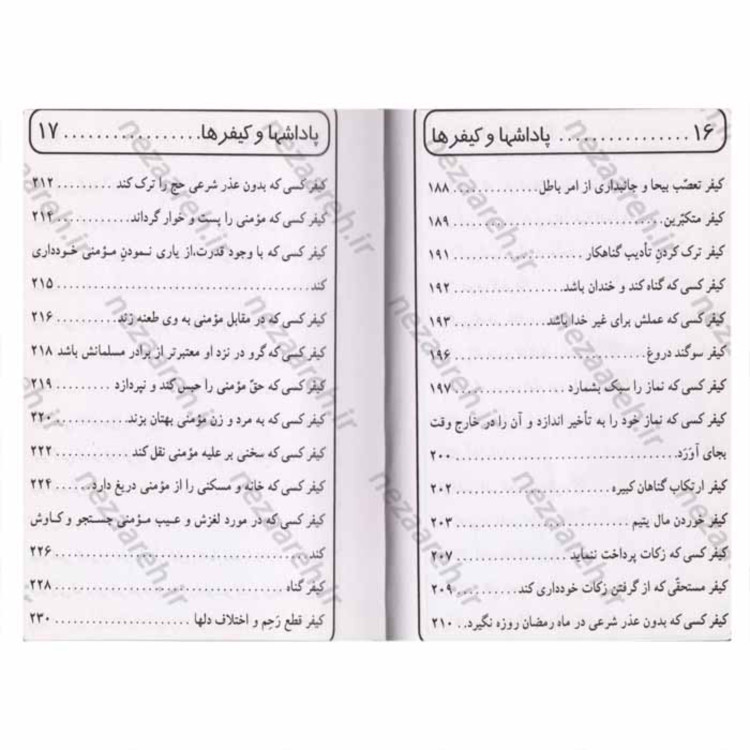 ۱۶ ................ پاداشها و کیفرها
کیفر تعصّب بیجا و جانبداری از امر باطل ........ ۱۸۸
کیفر متکبّرین ........................ ۱۸۹
کیفر ترک کردنِ تأدیب گناهکار ............ ۱۹۱
کیفر کسی که گناه کند و خندان باشد ............ ۱۹۲
کیفر کسی که عملش برای غیر خدا باشد ............ ۱۹۳
کیفر سوگند دروغ ........................ ۱۹۶
کیفر کسی که نماز را سبک بشمارد ............ ۱۹۷
کیفر کسی که نماز خود را به تأخیر اندازد و آن را در خارج وقت
بجای آوَرَد ........................ ۲۰۰
کیفر ارتکاب گناهان کبیره ............ ۲۰۲
کیفر خوردن مال یتیم ............ ۲۰۳
کیفر کسی که زکات پرداخت ننماید ............ ۲۰۷
کیفر مستحقّی که از گرفتن زکات خودداری کند ........ ۲۰۹
کیفر کسی که بدون عذر شرعی در ماه رمضان روزه نگیرد .. ۲۱۰
پاداشها و کیفرها ................ ۱۷
کیفر کسی که بدون عذر شرعی حج را ترک کند ........ ۲۱۲
کیفر کسی که مؤمنی را پست و خوار گرداند ........ ۲۱۴
کیفر کسی که با وجود قدرت، از یاری نمودنِ مؤمنی خودداری
کند ........................ ۲۱۵
کیفر کسی که در مقابل مؤمنی به وی طعنه زند ........ ۲۱۶
کیفر کسی که گرو در نزد او معتبرتر از برادر مسلمانش باشد ۲۱۸
کیفر کسی که حقّ مؤمنی را حبس کند و نپردازد ........ ۲۱۹
کیفر کسی که به مرد و زن مؤمنی بهتان بزند ........ ۲۲۰
کیفر کسی که سخنی بر علیه مؤمنی نقل کند ........ ۲۲۲
کیفر کسی که خانه و مسکنی را از مؤمنی دریغ دارد ...... ۲۲۴
کیفر کسی که در مورد لغزش و عیب مؤمنی جستجو و کاوش
کند ........................ ۲۲۶
کیفر گناه ........................ ۲۲۸
کیفر قطع رَحِم و اختلاف دلها ............ ۲۳۰
nezaareh.ir